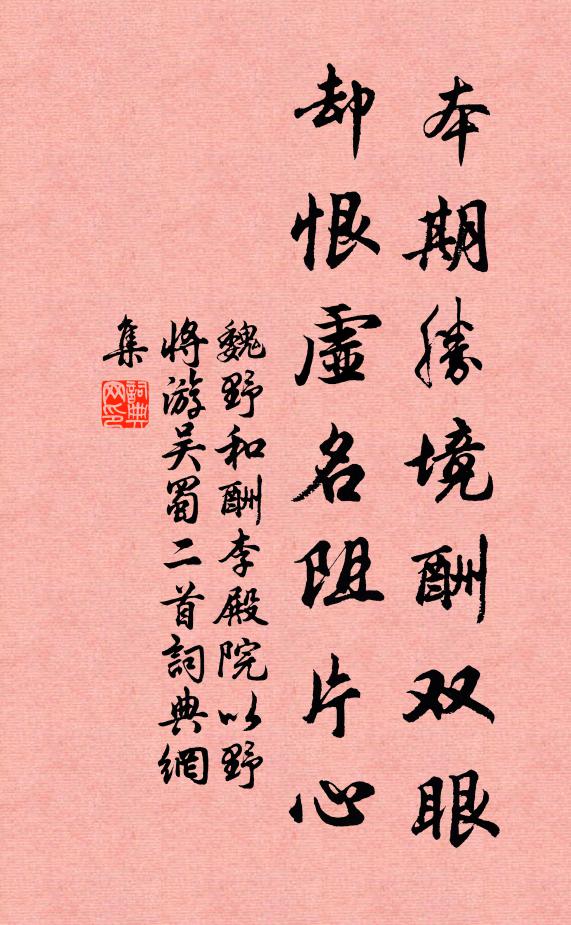 本期勝境酬双眼
却恨虛名阻片心
魏野和酬李殿院以野
将游吴蜀二首詞典網
集
詞典
网印